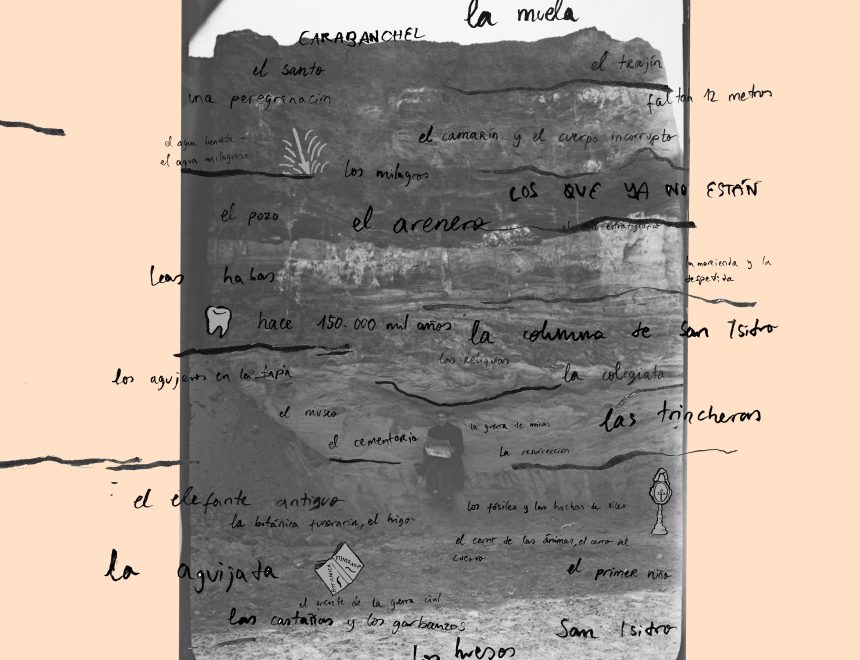 la muela
CARABANCHEL
el santo
el trajín
una peregrinación
faltan 12 metros
el agua bendita -
el agua milagrosa
el camarín y el cuerpo incorrupto
los milagros
LOS QUE YA NO ESTÁN
el pozo
el arenero
estratigráfico
la merienda y la
despedida
leas habas
hace 150.000 mil años
la columna de San Isidro
las reliquias
los agujeros en la tapia
la colegiata
el museo
la guerra de minas
las trincheras
el cementerio
la resurrección
el elefante antiguo
los fósiles y las hachas de sílex
la botánica funeraria, el higo
el cerro de las ánimas, el cerro del
cuervo
la aguijada
el primer niño
el frente de la guerra civil
las castañas y los garbanzos
San Isidro
los huesos